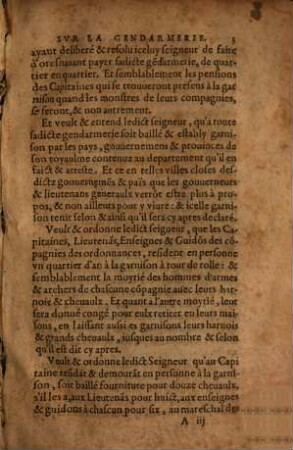 SVR LA GENDARMERIE. 5
ayant deliberé & resolu iceluy seigneur de faire
d'oresnauant payer sadicte gēdarmerie, de quar
tier en quartier. Et semblablement les pensions
des Capitaines qui se trouueront presens à la gar
nison quand les monstres de leurs compagnies,
se feront, & non autrement.
Et veult & entend ledict seigneur, qu'a toute
sadicte gendarmerie soit baillé & estably garni-
son par les pays, gouuernemens & prouinces de
son royaulme contenuz au departement qu'il en
faict & arreste. Et ce en telles villes closes des-
dictz gouuernemēs & païs que les gouuerneurs
& lieutenans generaulx verrōt estre plus à pro-
pos, & non ailleurs pour y viure: & icelle garni-
son tenir selon & ainsi qu'il sera cy apres declaré.
Veult & ordonne ledict seigneur, que les Ca-
pitaines, Lieutenās, Enseignes & Guidōs des cō-
pagnies des ordonnances, resident en personne
vn quartier d'an à la garnison à tour de rolle: &
semblablement la moytié des hommes d'armes
& archers de chascune cōpagnie auec leurs har-
nois & cheuaulx. Et quant a l'autre moytié, leur
sera donné congé pour eulx retirer en leurs mai-
sons, en laissant aussi es garnisons leurs harnois
& grands cheuaulx, iusques au nombre & selon
qu'il est dit cy apres.
Veult & ordonne ledict Seigneur qu'au Capi
taine resdāt & demourāt en personne à la garni-
son, soit baillé fourniture pour douze cheuaulx,
s'il les a, aux Lieutenās pour huict, aux enseignes
& guidons à chascun pour six, au mareschal des
A iij